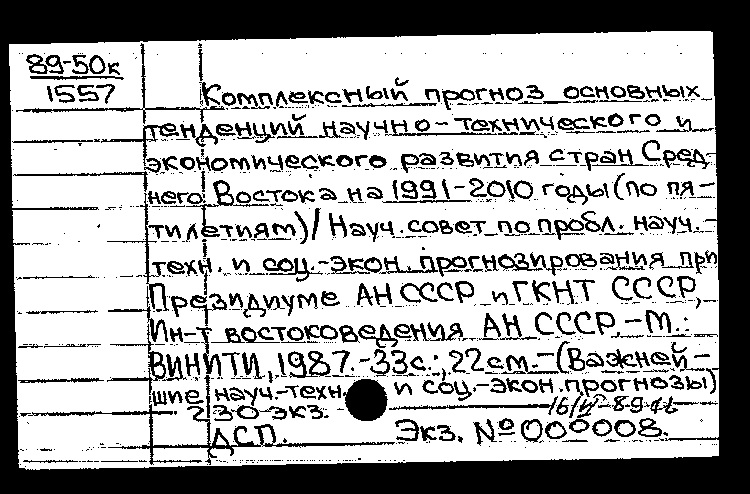 89-50к
1557
Комплексный прогноз основных
тенденций научно-технического и
экономического развития стран Сред-
него Востока на 1991-2010 годы (по пя-
тилетиям)/ Науч. совет по пробл. науч.-
техн. и соц.-экон. прогнозирования при
Президиуме АН СССР и ГКНТ СССР,
Ин-т востоковедения АН СССР.-М.:
ВИНИТИ, 1987.-33с.; 22см.-(Важней-
шие науч.-техн. и соц.-экон. прогнозы)
230 экз.
ДСП. Экз. № 000008.